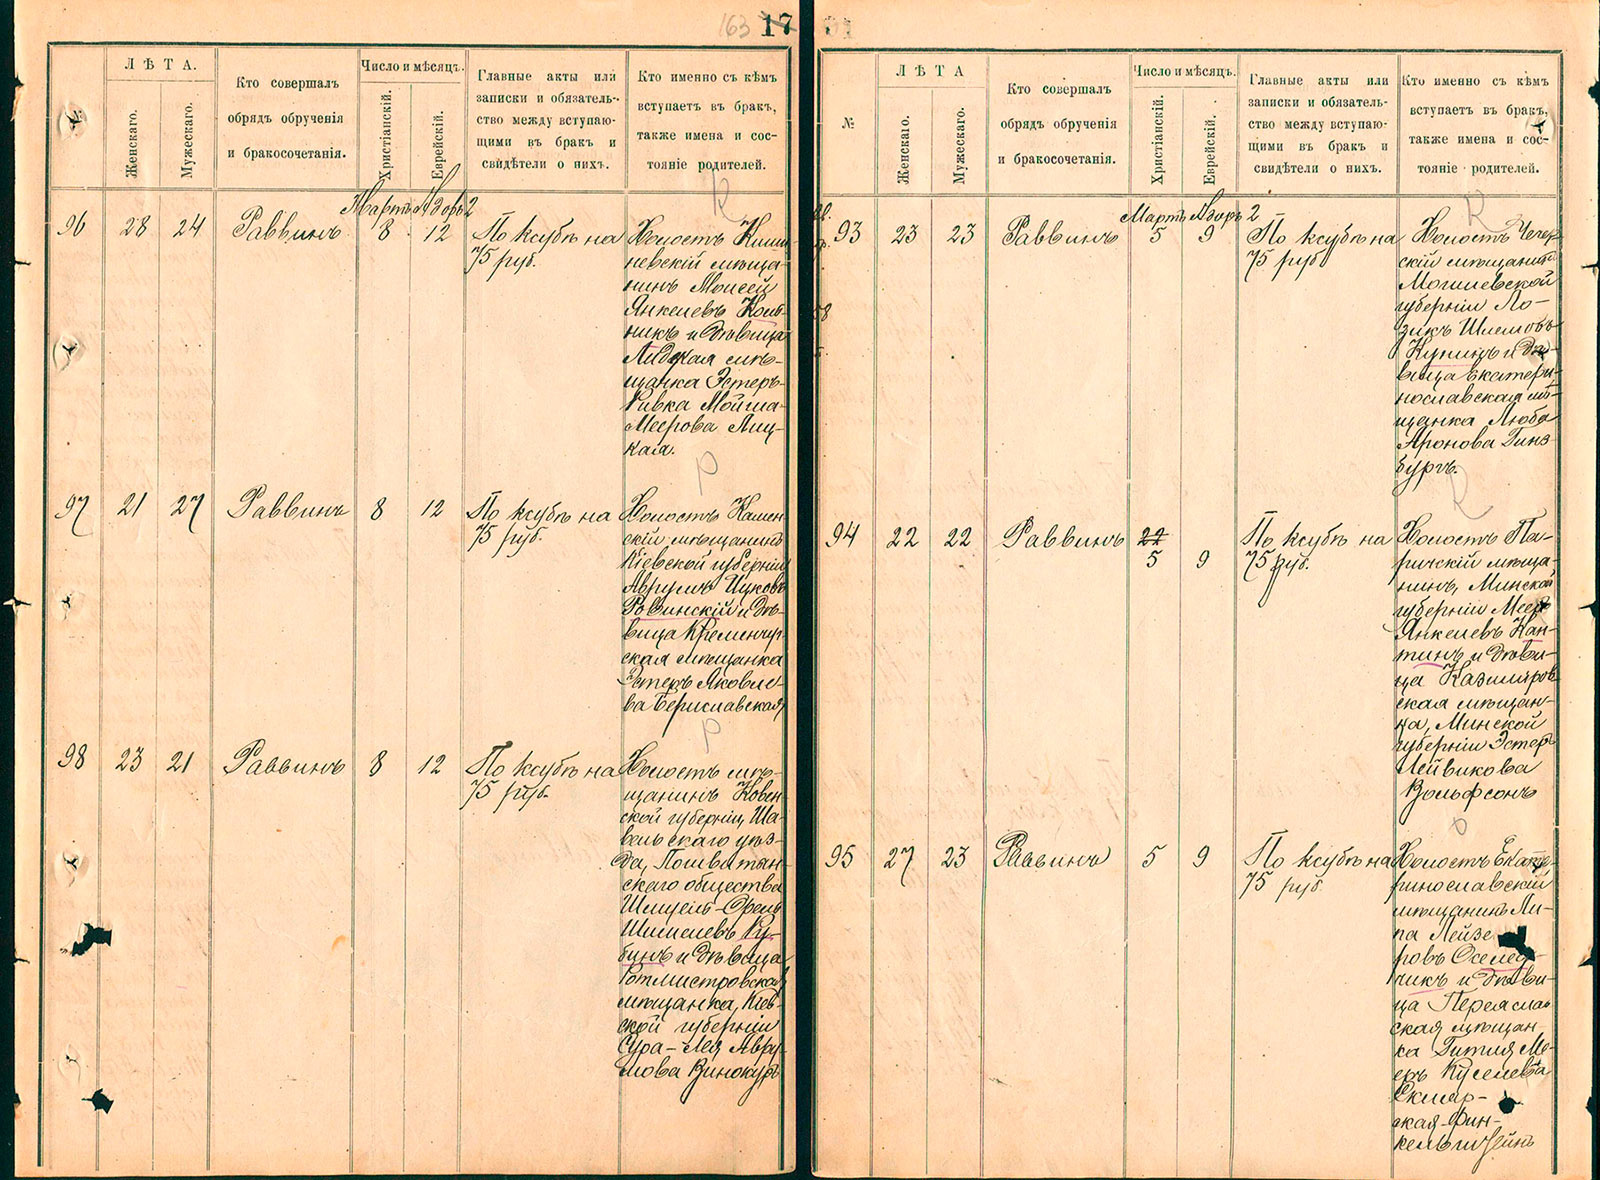 163 17
ЛѢТА.
Женскаго.
Мужескаго.
Кто совершалъ
обрядъ обрученія
и бракосочетанія.
Число и мѣсяцъ.
Христіанскій.
Еврейскій.
Главные акты или
записки и обязатель-
ство между вступаю-
щими въ бракъ и
свидѣтели о нихъ.
Кто именно съ кѣмъ
вступаетъ въ бракъ,
также имена и сос-
тояніе родителей.
Мартъ Адоръ 2
96 28 24 Раввинъ 8 12 По ксубѣ на
75 руб.
Холостъ Киши-
невскій мѣща-
нинъ Моисей
Янкелевъ Коль-
никъ и дѣвица
Лидская мѣ-
щанка Эстеръ-
Ривка Мойша-
Меерова Лиц-
кая.
97 21 27 Раввинъ 8 12 По ксубѣ на
75 руб.
Холостъ Камен-
скій мѣщанинъ
Кіевской губерніи
Аврумъ Ицковъ
Ровинскій и дѣ-
вица Кременчуг-
ская мѣщанка
Эстеръ Яковле-
ва Бериславская
98 23 21 Раввинъ 8 12 По ксубѣ на
75 руб.
Холостъ мѣ-
щанинъ Ковен-
ской губерніи, Ша-
вельскаго уѣз-
да, Пошвитян-
скаго общества
Шмуель-Орель
Шмилевъ Ру-
бинъ и дѣвица
Ротмистровская
мѣщанка, Кіев-
ской губерніи
Сура-Лея Авру-
мова Винокуръ
№
ЛѢТА
Женскаго.
Мужескаго.
Кто совершалъ
обрядъ обрученія
и бракосочетанія.
Число и мѣсяцъ.
Христіанскій.
Еврейскій.
Главные акты или
записки и обязатель-
ство между вступаю-
щими въ бракъ и
свидѣтели о нихъ.
Кто именно съ кѣмъ
вступаетъ въ бракъ,
также имена и сос-
тояніе родителей.
Мартъ Адоръ 2
93 23 23 Раввинъ 5 9 По ксубѣ на
75 руб.
Холостъ Чечер-
скій мѣщанинъ
Могилевской
губерніи Ло-
зикъ Шлемовъ
Купинъ и дѣ-
вица Екатери-
нославская мѣ-
щанка Люба
Аронова Гинз-
бургъ.
94 22 22 Раввинъ 22
5 9
По ксубѣ на
75 руб.
Холостъ Па-
ричскій мѣща-
нинъ, Минской
губерніи Меер
Янкелевъ Кан-
тинъ и дѣви-
ца Казимиров-
ская мѣщан-
ка, Минской
губерніи Эстеръ
Лейвикова
Вольфсонъ
95 27 23 Раввинъ 5 9 По ксубѣ на
75 руб.
Холостъ Екате-
ринославскій
мѣщанинъ Ли-
па Лейзе-
ровъ Оселед-
чикъ и дѣви-
ца Переяслав-
ская мѣщан-
ка Гитля Ме-
еръ Куселева
Склар-
ская-Фин-
кельштейнъ